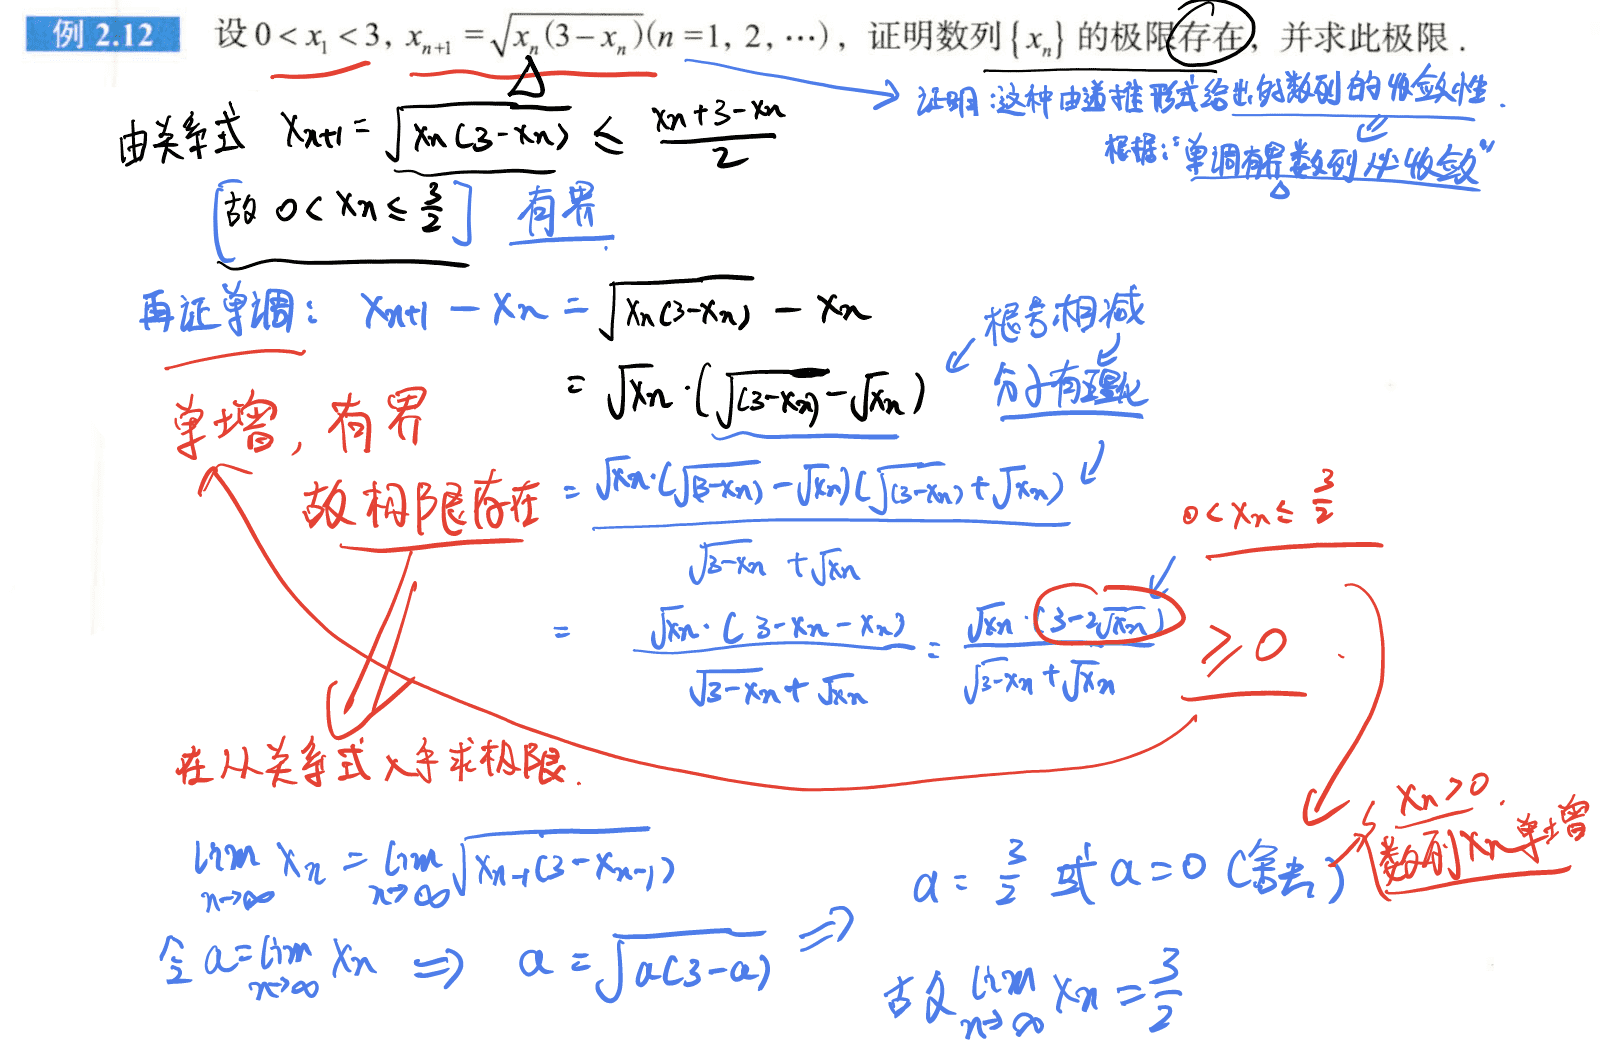 例 2.12 设 0 < x₁ < 3, xₙ₊₁ = √(xₙ(3 − xₙ)) (n = 1, 2, ⋯), 证明数列 {xₙ} 的极限存在, 并求此极限.
证明:这种由递推形式给出的数列的收敛性.
根据:"单调有界数列必收敛"
由关系式 xₙ₊₁ = √(xₙ(3−xₙ)) ≤ (xₙ+3−xₙ)/2
[故 0 < xₙ ≤ 3/2] 有界.
再证单调: xₙ₊₁ − xₙ = √(xₙ(3−xₙ)) − xₙ
= √xₙ · (√(3−xₙ) − √xₙ)
根号相减
分子有理化
单增, 有界
故极限存在
= √xₙ·(√(3−xₙ) − √xₙ)(√(3−xₙ) + √xₙ) / (√(3−xₙ) + √xₙ)
0 < xₙ ≤ 3/2
= √xₙ·(3−xₙ−xₙ) / (√(3−xₙ) + √xₙ) = √xₙ·(3−2√xₙ) / (√(3−xₙ) + √xₙ) ≥ 0
在从关系式入手求极限.
lim n→∞ xₙ = lim n→∞ √(xₙ₋₁(3−xₙ₋₁))
令 a = lim n→∞ xₙ ⇒ a = √(a(3−a)) ⇒
a = 3/2 或 a = 0 (舍去)
xₙ > 0.
数列xₙ单增
故 lim n→∞ xₙ = 3/2